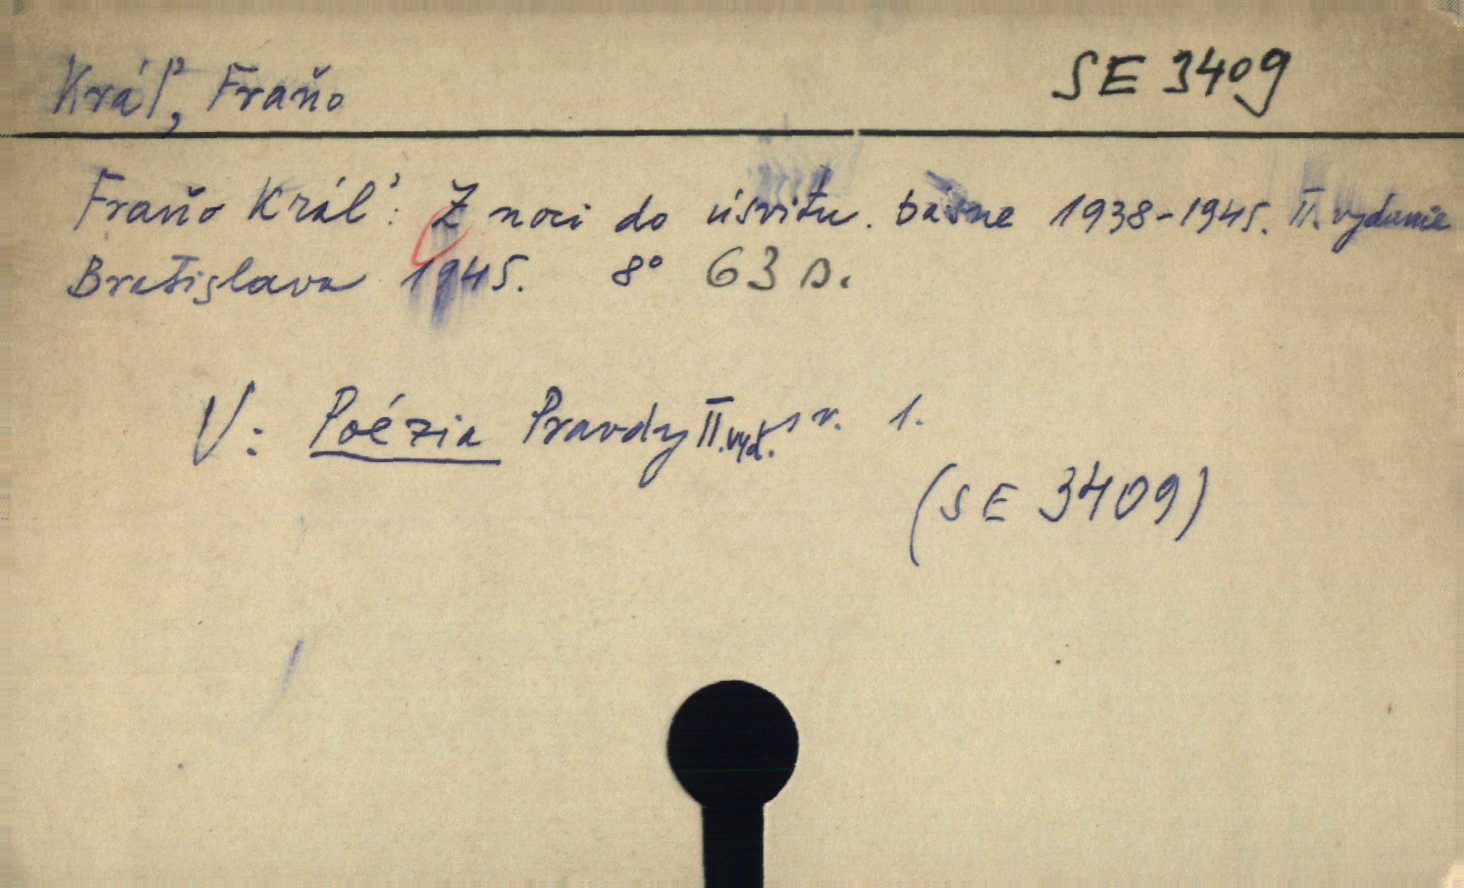 Kráľ, Fraňo SE 3409
Fraňo Kráľ: Z noci do úsvitu. básne 1938-1945. II. vydanie
Bratislava 1945. 8° 63 s.
V: Poézia Pravdy II. vyd. sv. 1.
(SE 3409)